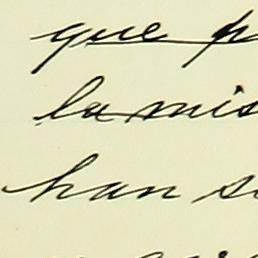 que p
la mis
han s